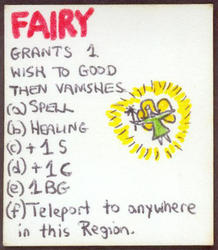 FAIRY
GRANTS 1
WISH TO GOOD
THEN VANISHES
(a) SPELL
(b) HEALING
(c) +1S
(d) +1C
(e) 1BG
(f) Teleport to anywhere
in this Region.